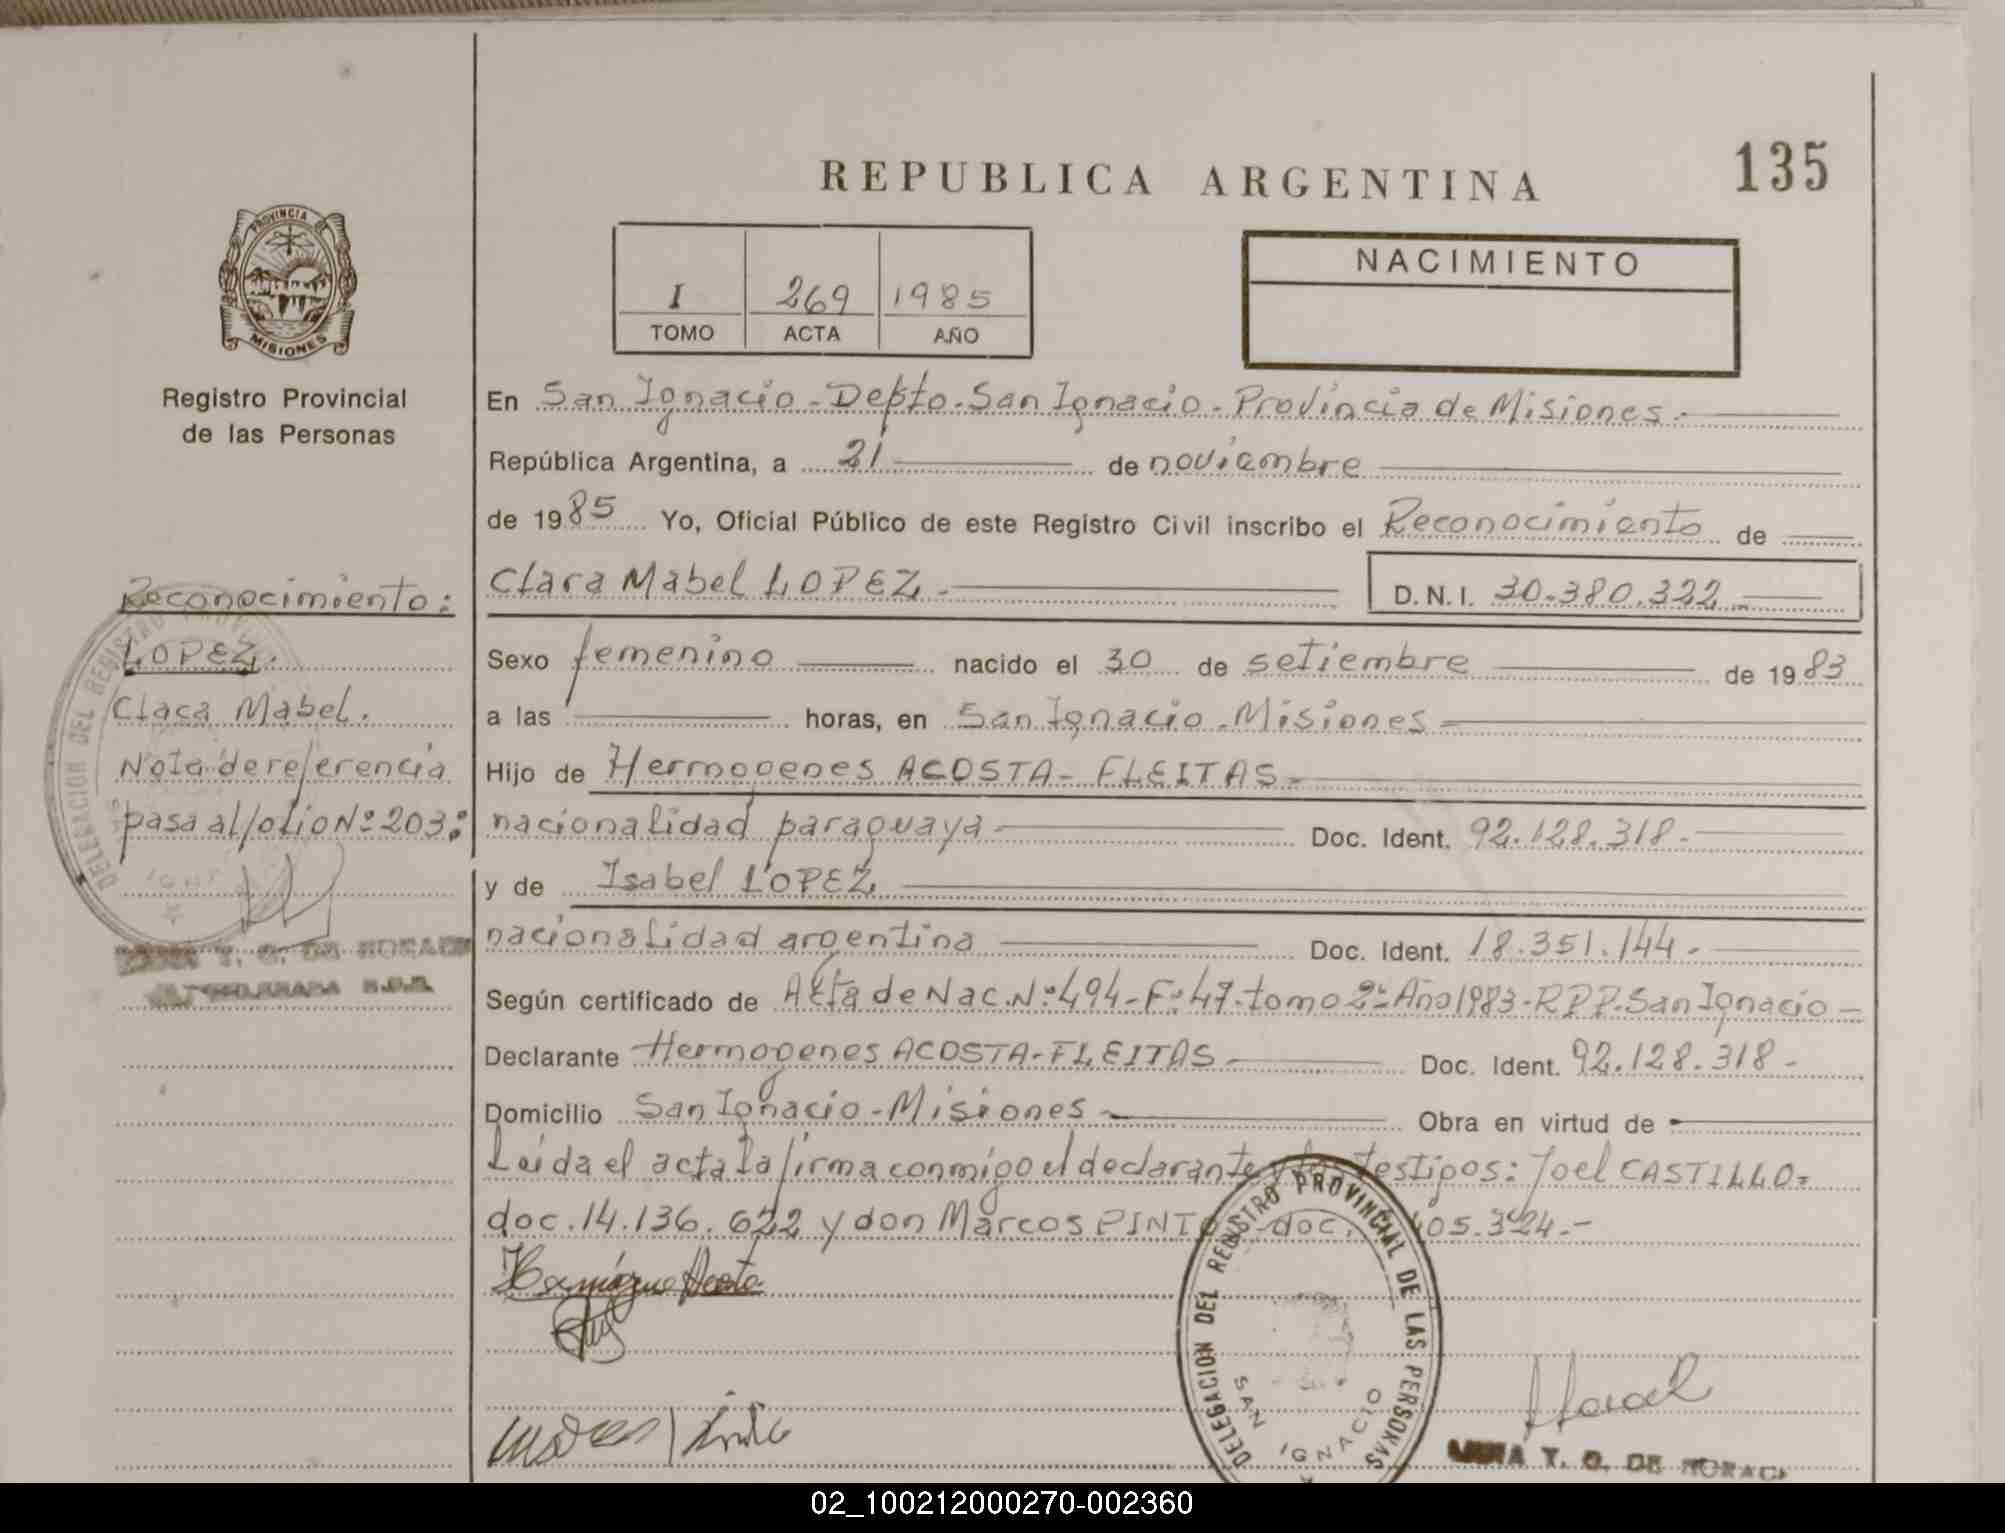 REPUBLICA ARGENTINA
135
PROVINCIA
MISIONES
Registro Provincial
de las Personas
I 269 1985
TOMO ACTA AÑO
NACIMIENTO
En San Ignacio - Depto. San Ignacio - Provincia de Misiones.-
República Argentina, a 21 de noviembre
de 1985 Yo, Oficial Público de este Registro Civil inscribo el Reconocimiento de
Clara Mabel LOPEZ.- D.N.I. 30.380.322
Sexo femenino nacido el 30 de setiembre de 1983
a las horas, en San Ignacio - Misiones
Hijo de Hermogenes ACOSTA - FLEITAS -
nacionalidad paraguaya Doc. Ident. 92.128.318.-
y de Isabel LOPEZ
nacionalidad argentina Doc. Ident. 18.351.144.-
Según certificado de Acta de Nac. Nº 494 - Fº 47 - tomo 2º Año 1983 - RPP. San Ignacio -
Declarante Hermogenes ACOSTA - FLEITAS Doc. Ident. 92.128.318 -
Domicilio San Ignacio - Misiones Obra en virtud de
Leida el acta la firma conmigo el declarante y los testigos: Joel CASTILLO=
doc. 14.136.622 y don Marcos PINTO - doc. 405.324.-
Reconocimiento:
LOPEZ.
Clara Mabel.
Nota de referencia
pasa al folio Nº 203:
DELEGACION DEL REGISTRO PROVINCIAL DE LAS PERSONAS
SAN IGNACIO
Marcos Pinto
Y. G. DE
02_100212000270-002360